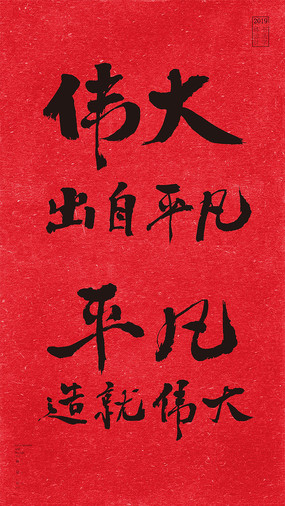 2019
伟大
出自平凡
平凡
造就伟大